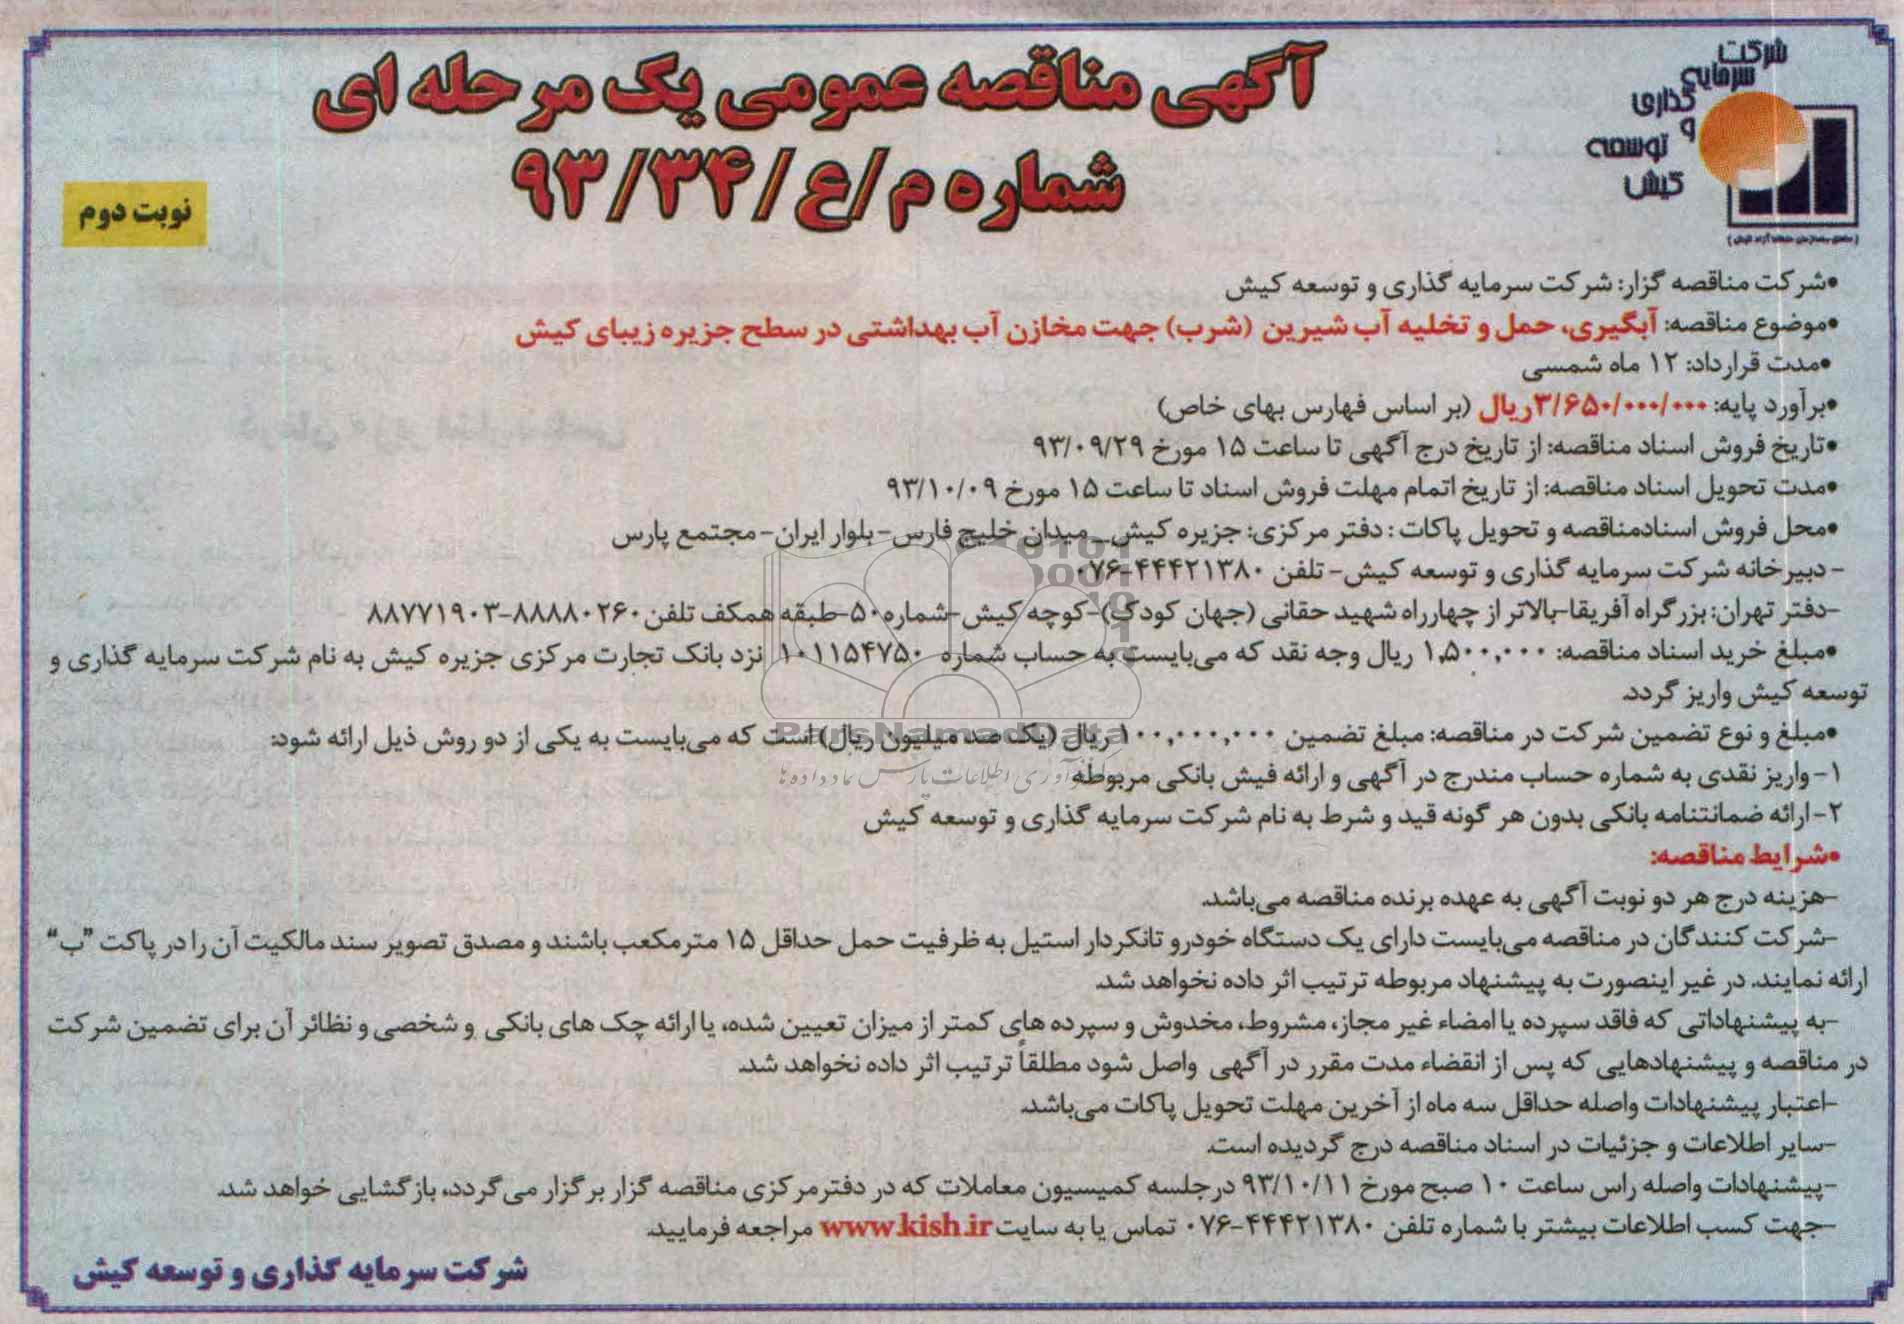 شرکت
سرمایه
گذاری
و
توسعه
کیش
آگهی مناقصه عمومی یک مرحله ای
شماره م/ع/۹۳/۳۴
نوبت دوم
•شرکت مناقصه گزار: شرکت سرمایه گذاری و توسعه کیش
•موضوع مناقصه: آبگیری، حمل و تخلیه آب شیرین (شرب) جهت مخازن آب بهداشتی در سطح جزیره زیبای کیش
•مدت قرارداد: ۱۲ ماه شمسی
•برآورد پایه: ۳/۶۵۰/۰۰۰/۰۰۰ریال (بر اساس فهارس بهای خاص)
•تاریخ فروش اسناد مناقصه: از تاریخ درج آگهی تا ساعت ۱۵ مورخ ۹۳/۰۹/۲۹
•مدت تحویل اسناد مناقصه: از تاریخ اتمام مهلت فروش اسناد تا ساعت ۱۵ مورخ ۹۳/۱۰/۰۹
•محل فروش اسنادمناقصه و تحویل پاکات : دفتر مرکزی: جزیره کیش_ میدان خلیج فارس- بلوار ایران- مجتمع پارس
- دبیرخانه شرکت سرمایه گذاری و توسعه کیش- تلفن ۴۴۴۲۱۳۸۰-۰۷۶
-دفتر تهران: بزرگراه آفریقا-بالاتر از چهارراه شهید حقانی (جهان کودک)-کوچه کیش-شماره۵۰-طبقه همکف تلفن ۸۸۸۸۰۲۶۰-۸۸۷۷۱۹۰۳
•مبلغ خرید اسناد مناقصه: ۱,۵۰۰,۰۰۰ ریال وجه نقد که می‌بایست به حساب شماره ۱۰۱۱۵۴۷۵۰ نزد بانک تجارت مرکزی جزیره کیش به نام شرکت سرمایه گذاری و
توسعه کیش واریز گردد.
•مبلغ و نوع تضمین شرکت در مناقصه: مبلغ تضمین ۱۰۰,۰۰۰,۰۰۰ ریال (یک صد میلیون ریال) است که می‌بایست به یکی از دو روش ذیل ارائه شود:
۱- واریز نقدی به شماره حساب مندرج در آگهی و ارائه فیش بانکی مربوطه
۲- ارائه ضمانتنامه بانکی بدون هر گونه قید و شرط به نام شرکت سرمایه گذاری و توسعه کیش
•شرایط مناقصه:
-هزینه درج هر دو نوبت آگهی به عهده برنده مناقصه می‌باشد.
-شرکت کنندگان در مناقصه می‌بایست دارای یک دستگاه خودرو تانکردار استیل به ظرفیت حمل حداقل ۱۵ مترمکعب باشند و مصدق تصویر سند مالکیت آن را در پاکت "ب"
ارائه نمایند. در غیر اینصورت به پیشنهاد مربوطه ترتیب اثر داده نخواهد شد.
-به پیشنهاداتی که فاقد سپرده یا امضاء غیر مجاز، مشروط، مخدوش و سپرده های کمتر از میزان تعیین شده، یا ارائه چک های بانکی و شخصی و نظائر آن برای تضمین شرکت
در مناقصه و پیشنهادهایی که پس از انقضاء مدت مقرر در آگهی واصل شود مطلقاً ترتیب اثر داده نخواهد شد.
-اعتبار پیشنهادات واصله حداقل سه ماه از آخرین مهلت تحویل پاکات می‌باشد.
-سایر اطلاعات و جزئیات در اسناد مناقصه درج گردیده است.
-پیشنهادات واصله راس ساعت ۱۰ صبح مورخ ۹۳/۱۰/۱۱ درجلسه کمیسیون معاملات که در دفترمرکزی مناقصه گزار برگزار می گردد، بازگشایی خواهد شد.
-جهت کسب اطلاعات بیشتر با شماره تلفن ۴۴۴۲۱۳۸۰-۰۷۶ تماس یا به سایت www.kish.ir مراجعه فرمایید.
شرکت سرمایه گذاری و توسعه کیش
ParsNamadData